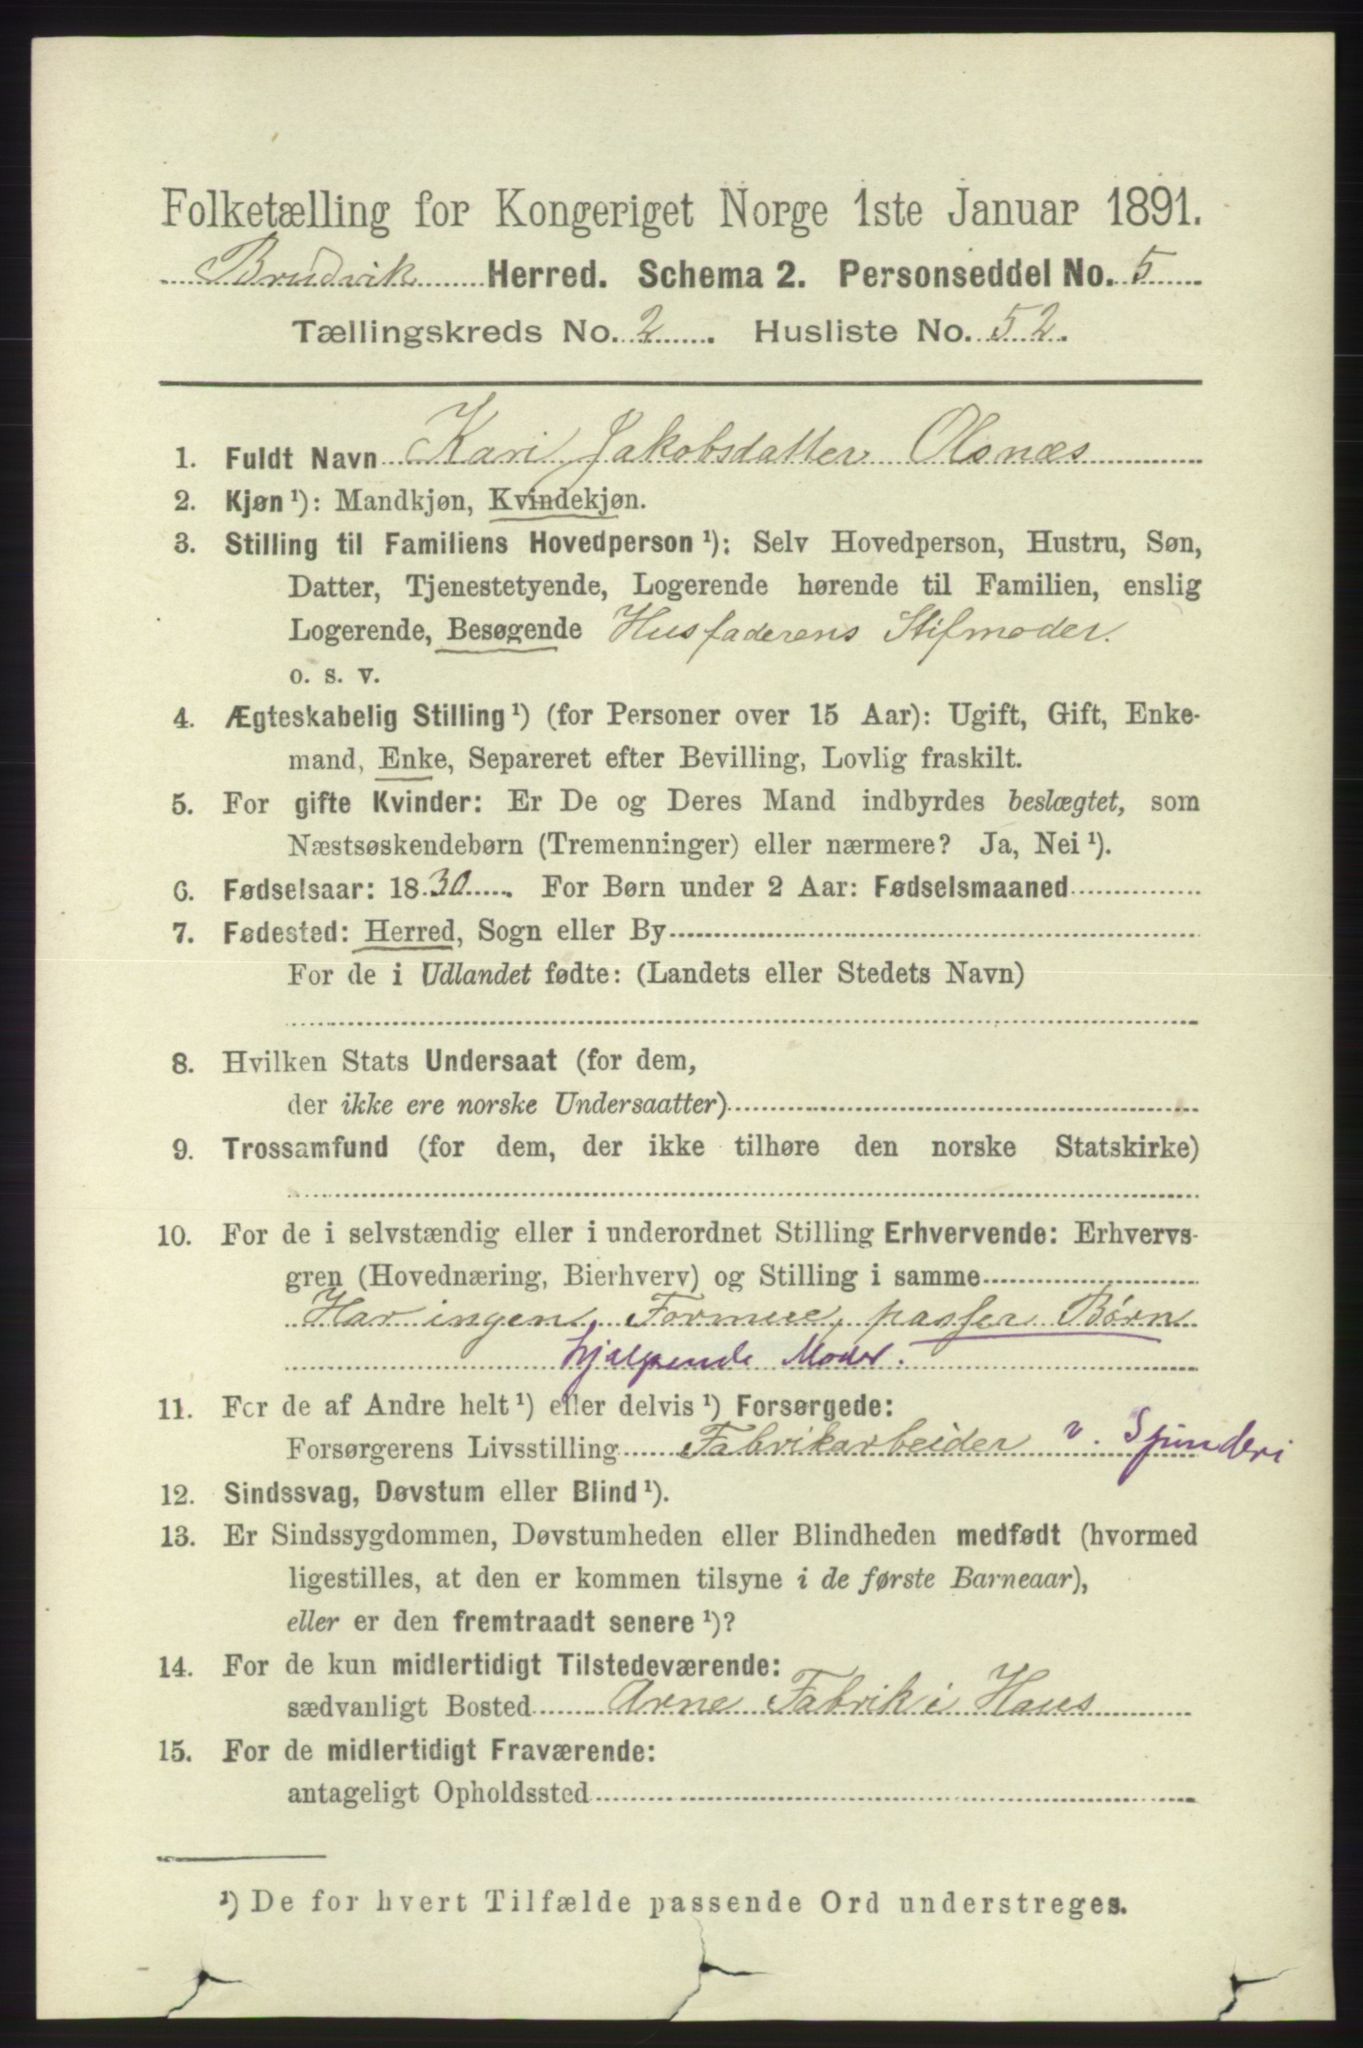 Folketælling for Kongeriget Norge 1ste Januar 1891.
Brudvik Herred. Schema 2. Personseddel No. 5
Tællingskreds No. 2. Husliste No. 52.
1. Fuldt Navn Kari Jakobsdatter Olsnæs
2. Kjøn ¹): Mandkjøn, Kvindekjøn.
3. Stilling til Familiens Hovedperson ¹): Selv Hovedperson, Hustru, Søn,
Datter, Tjenestetyende, Logerende hørende til Familien, enslig
Logerende, Besøgende Husfaderens Stifmoder.
o. s. v.
4. Ægteskabelig Stilling ¹) (for Personer over 15 Aar): Ugift, Gift, Enke-
mand, Enke, Separeret efter Bevilling, Lovlig fraskilt.
5. For gifte Kvinder: Er De og Deres Mand indbyrdes beslægtet, som
Næstsøskendebørn (Tremenninger) eller nærmere? Ja, Nei ¹).
6. Fødselsaar: 1830. For Børn under 2 Aar: Fødselsmaaned
7. Fødested: Herred, Sogn eller By
For de i Udlandet fødte: (Landets eller Stedets Navn)
8. Hvilken Stats Undersaat (for dem,
der ikke ere norske Undersaatter)
9. Trossamfund (for dem, der ikke tilhøre den norske Statskirke)
10. For de i selvstændig eller i underordnet Stilling Erhvervende: Erhvervs-
gren (Hovednæring, Bierhverv) og Stilling i samme
Har ingen Formue, passer Børn
hjælpende Moder.
11. For de af Andre helt ¹) eller delvis ¹) Forsørgede:
Forsørgerens Livsstilling Fabrikarbeider v. Spinderi
12. Sindssvag, Døvstum eller Blind ¹).
13. Er Sindssygdommen, Døvstumheden eller Blindheden medfødt (hvormed
ligestilles, at den er kommen tilsyne i de første Barneaar),
eller er den fremtraadt senere ¹)?
14. For de kun midlertidigt Tilstedeværende:
sædvanligt Bosted Arne Fabrik i Haus
15. For de midlertidigt Fraværende:
antageligt Opholdssted
¹) De for hvert Tilfælde passende Ord understreges.